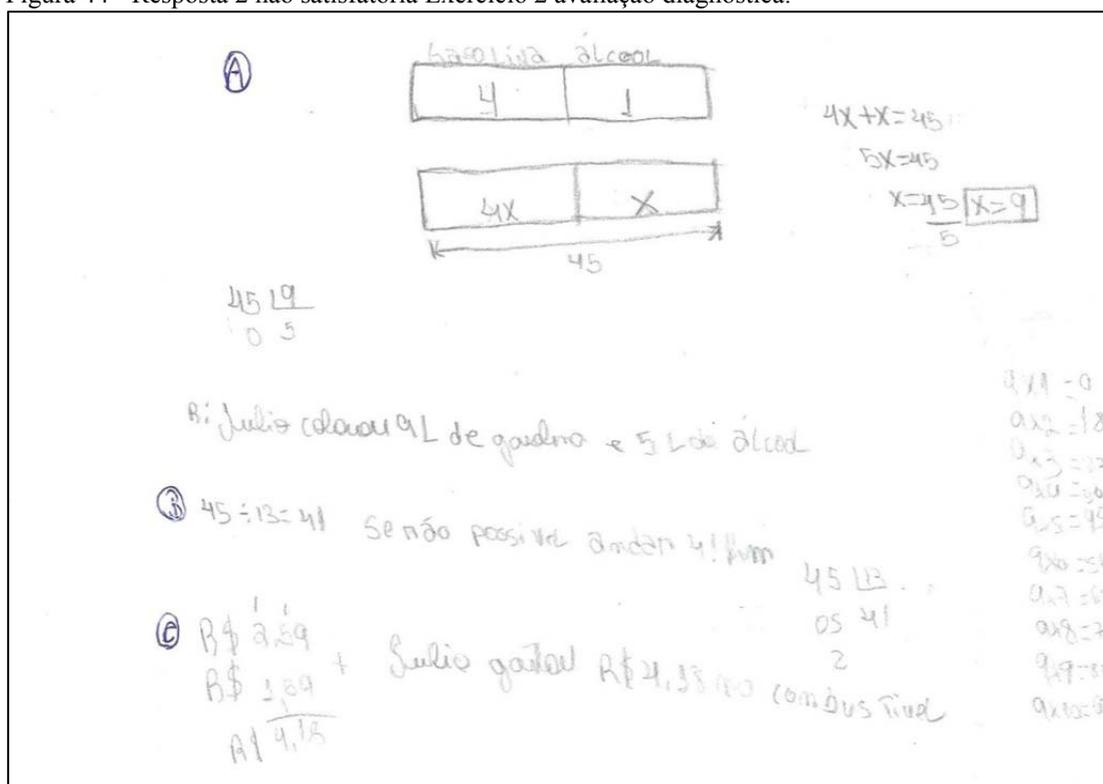 Figura 44 - Resposta 2 não satisfatória Exercício 2 avaliação diagnóstica.
A
Gasolina álcool
4 1
4x x
45
4x+x=45
5x=45
x=45 x=9
5
45 9
0 5
R: Julio colocou 9L de gasolina e 5 L de álcool
B 45÷13=41 Se não possivel andar 41 km
45 13
05 41
2
C R$ 2,59
R$ 1,59 +
R$ 4,18
Julio gastou R$ 4,18 no combustivel
9x1=9
9x2=18
9x3=
9x4=
9x5=45
9x6=5
9x7=6
9x8=7
9x9=8
9x10=9